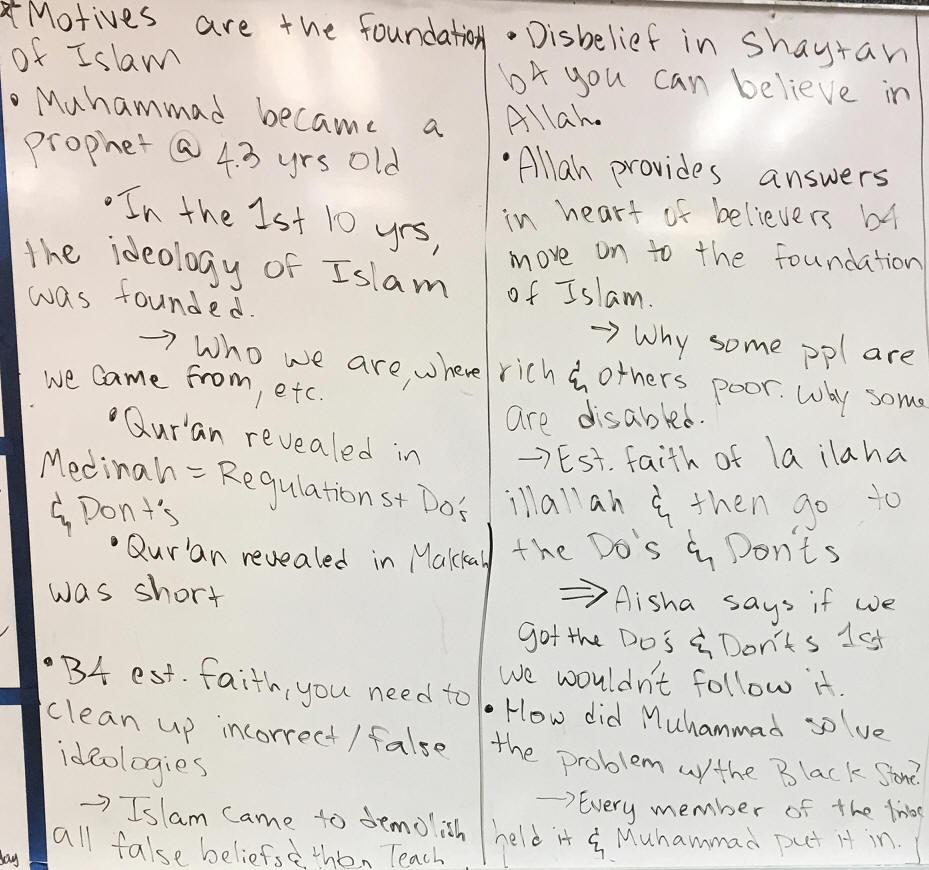 * Motives are the foundation
of Islam
• Muhammad became a
prophet @ 43 yrs old
• In the 1st 10 yrs,
the ideology of Islam
was founded.
→ Who we are, where
we came from, etc.
• Qur'an revealed in
Medinah = Regulations + Do's
& Dont's
• Qur'an revealed in Makkah
was short
• B4 est. faith, you need to
clean up incorrect/false
ideologies
→ Islam came to demolish
all false beliefs & then Teach
• Disbelief in Shaytan
b4 you can believe in
Allah.
• Allah provides answers
in heart of believers b4
move on to the foundation
of Islam.
→ Why some ppl are
rich & others poor. Why some
are disabled.
→ Est. faith of la ilaha
illallah & then go to
the Do's & Don'ts
⇒ Aisha says if we
got the Do's & Don't's 1st
we wouldn't follow it.
• How did Muhammad solve
the problem w/the Black Stone?
→ Every member of the tribe
held it & Muhammad put it in.
day